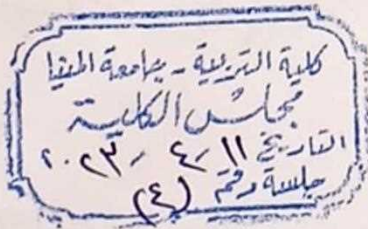 كلية التربية - جامعة المنيا
مجلس الكلية
التاريخ ١١ / ٤ / ٢٠٢٣
جلسة رقم (٤)